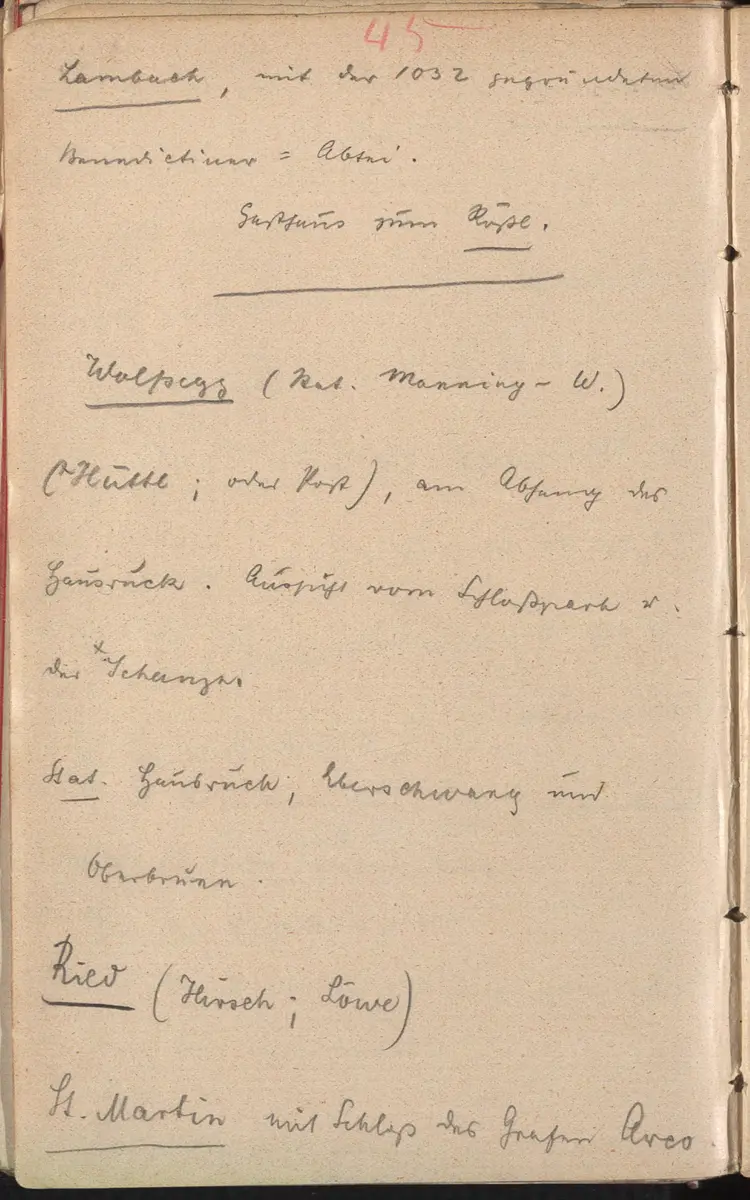 45
Lambach, mit der 1032 gegründeten
Benedictiner = Abtei.
Gasthaus zum Rößl.
Wolfsegg (Stat. Manning - W.)
(*Hüttl; oder Post), am Abhang des
Hausruck. Aussicht vom Schloßpark u.
der *Schanze.
Stat. Hausruck, Eberschwang und
Oberbrunn.
Ried (Hirsch; Löwe)
St. Martin mit Schloß des Grafen Arco.